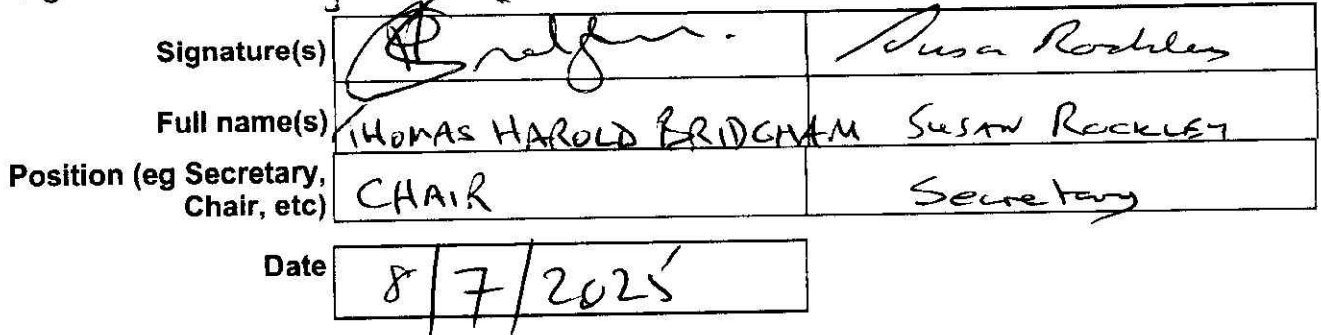 Signature(s) Susan Rockley
Full name(s) THOMAS HAROLD BRIDGHAM SUSAN ROCKLEY
Position (eg Secretary, CHAIR Secretary
Chair, etc)
Date 8/7/2025